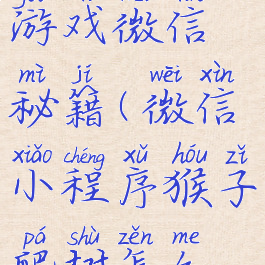 游戏微信
mì jí wēi xìn
秘籍(微信
xiǎo chéng xù hóu zǐ
小程序猴子
pá shù zěn me
爬树怎么